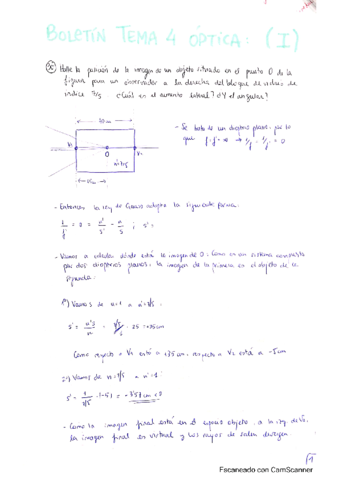 BOLETÍN TEMA 4 ÓPTICA: (I)
Halle la posición de la imagen de un objeto situado en el punto O de la
figura para un observador a la derecha del bloque de vidrio de
índice 7/5. ¿Cuál es el aumento lateral? ¿Y el angular?
30cm
V₁ O V₂
n'=7/5
15cm
- Se trata de un dioptrio plano, por lo
que: f, f' = ∞ → 1/f, 1/f' = 0
- Entonces la ley de Gauss adopta la siguiente forma:
1/f' = 0 = n'/s' - n/s ; s' =
- Vamos a calcular dónde está la imagen de O. Como es un sistema compuesto
por dos dioptrios planos, la imagen de la primera es el objeto de la
segunda:
1º) Vamos de n=1 a n'=7/5:
s' = n's/n = 7/5 · 25 = +35cm
Como respecto a V₁ está a +35cm, respecto a V₂ está a -5cm
2º) Vamos de n=7/5 a n'=1:
- Como la imagen final está en el espacio objeto, a la izq. de V₂,
la imagen final es virtual y los rayos de salen divergen.
Escaneado con CamScanner